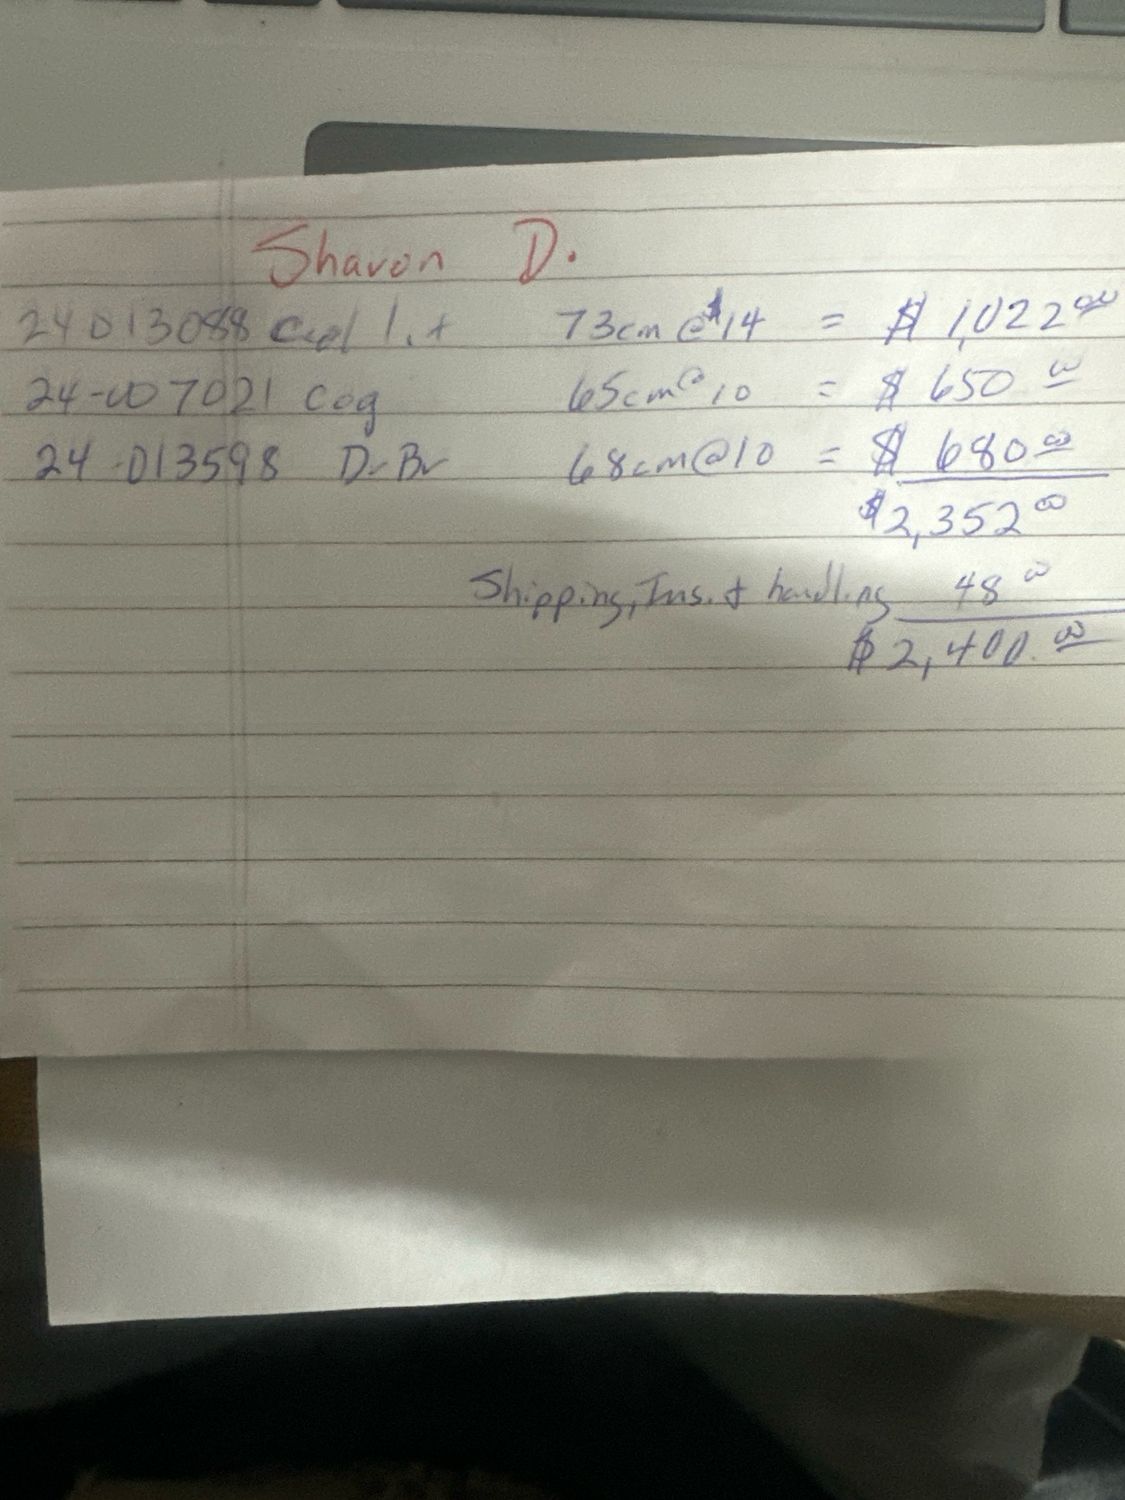 Sharon D.
24 013088 Cuel l.t 73cm @ $14 = $ 1,022 00
24-007021 Cog 65cm @ 10 = $ 650 00
24-013598 Dr Br 68cm @ 10 = $ 680 00
$2,352 00
Shipping, Ins. & handling 48 00
$2,400. 00